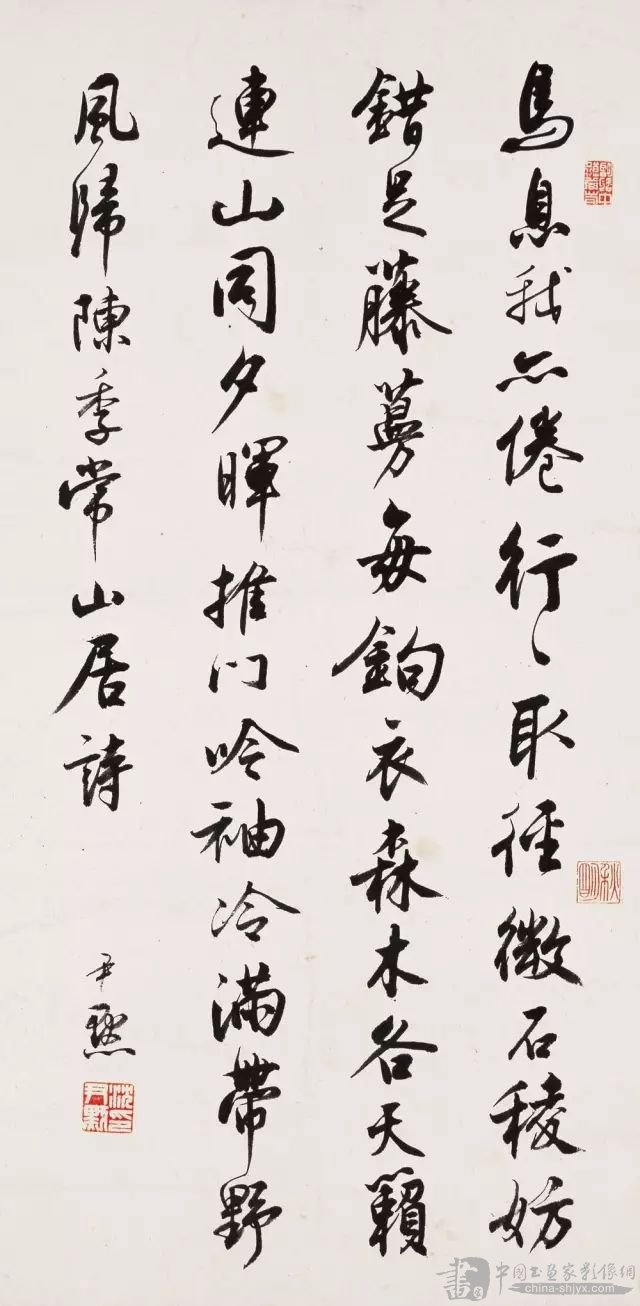 馬息我亦倦行々取徑微石稜妨
錯足藤蔓每鉤衣森木各天籟
連山同夕暉推門吟袖冷滿帶野
風歸陳季常山居詩
尹默
沈尹默印
秋明
書
中國书画家影像網
china-shjyx.com